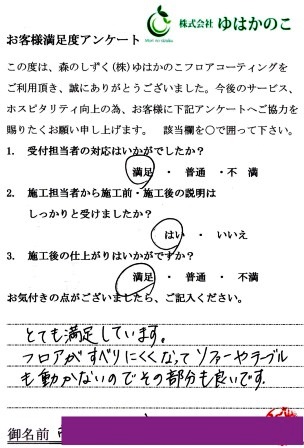 Mori no shizuku
株式会社 ゆはかのこ
お客様満足度アンケート
この度は、森のしずく(株)ゆはかのこフロアコーティングを
ご利用頂き、誠にありがとうございました。今後のサービス、
ホスピタリティ向上の為、お客様に下記アンケートへご協力を
賜りたくお願い申し上げます。 該当欄を○で囲って下さい。
1. 受付担当者の対応はいかがでしたか?
満足 ・ 普通 ・不 満
2. 施工担当者から施工前・施工後の説明は
しっかりと受けましたか?
はい ・ いいえ
3. 施工後の仕上がりはいかがですか?
満足 ・ 普通 ・ 不満
お気付きの点がございましたら、ご記入ください。
とても満足しています。
フロアがすべりにくくなってソファーやテーブル
も動かないのでその部分も良いです。
御名前